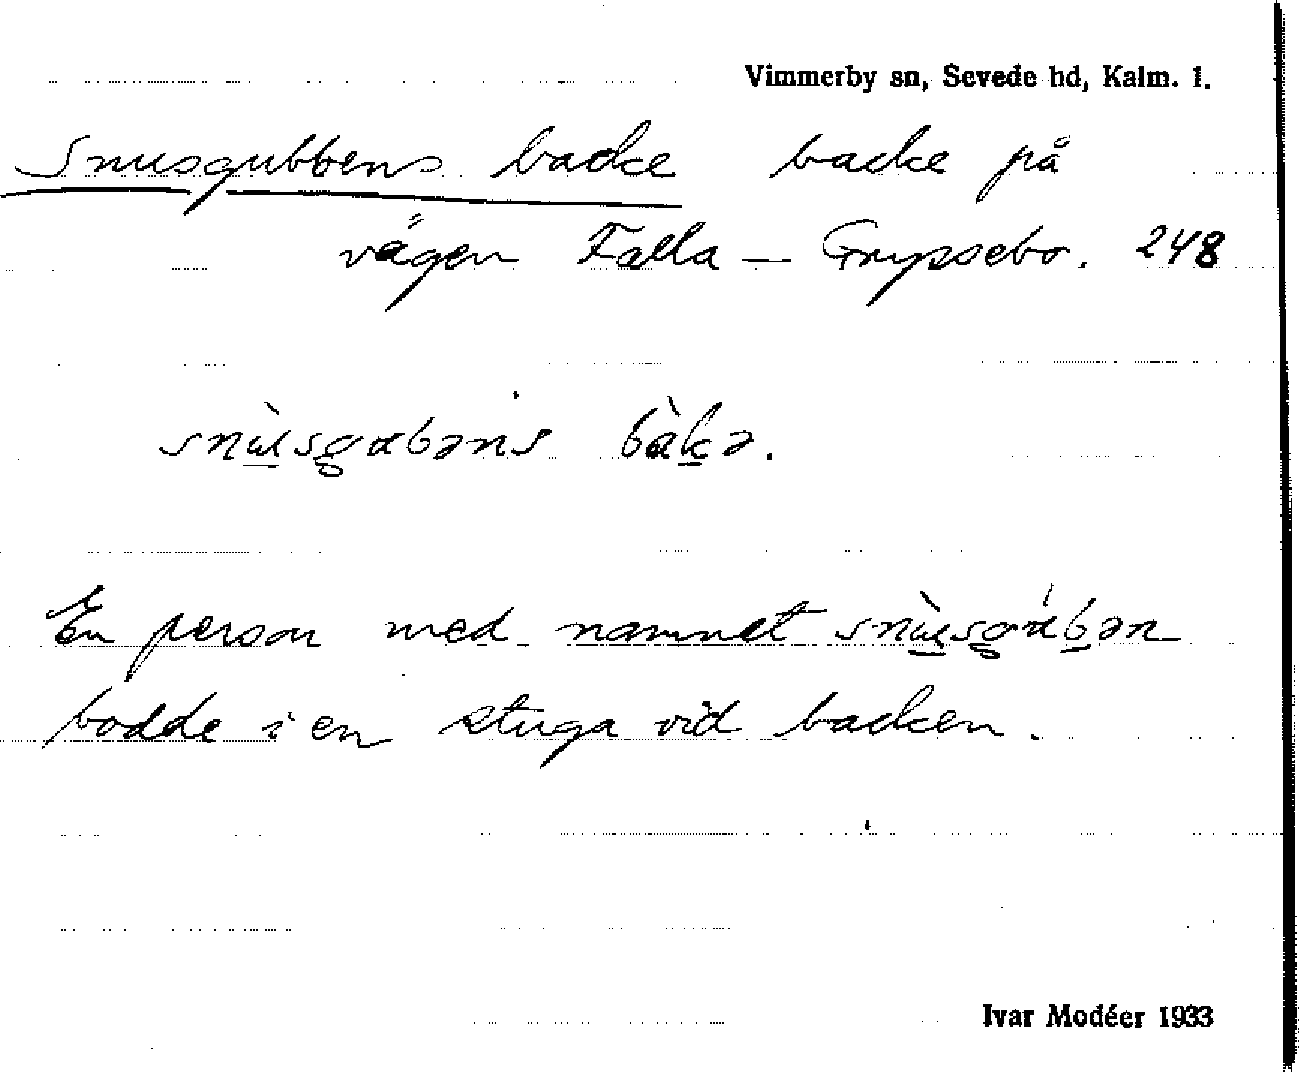 Vimmerby sn, Sevede hd, Kalm. l.
Snusgubbens backe backe på
vägen Falla — Grypsebo. 248
snùsgɑbəns bàkə.
En person med namnet snùsgɑ́bən
bodde i en stuga vid backen.
Ivar Modéer 1933